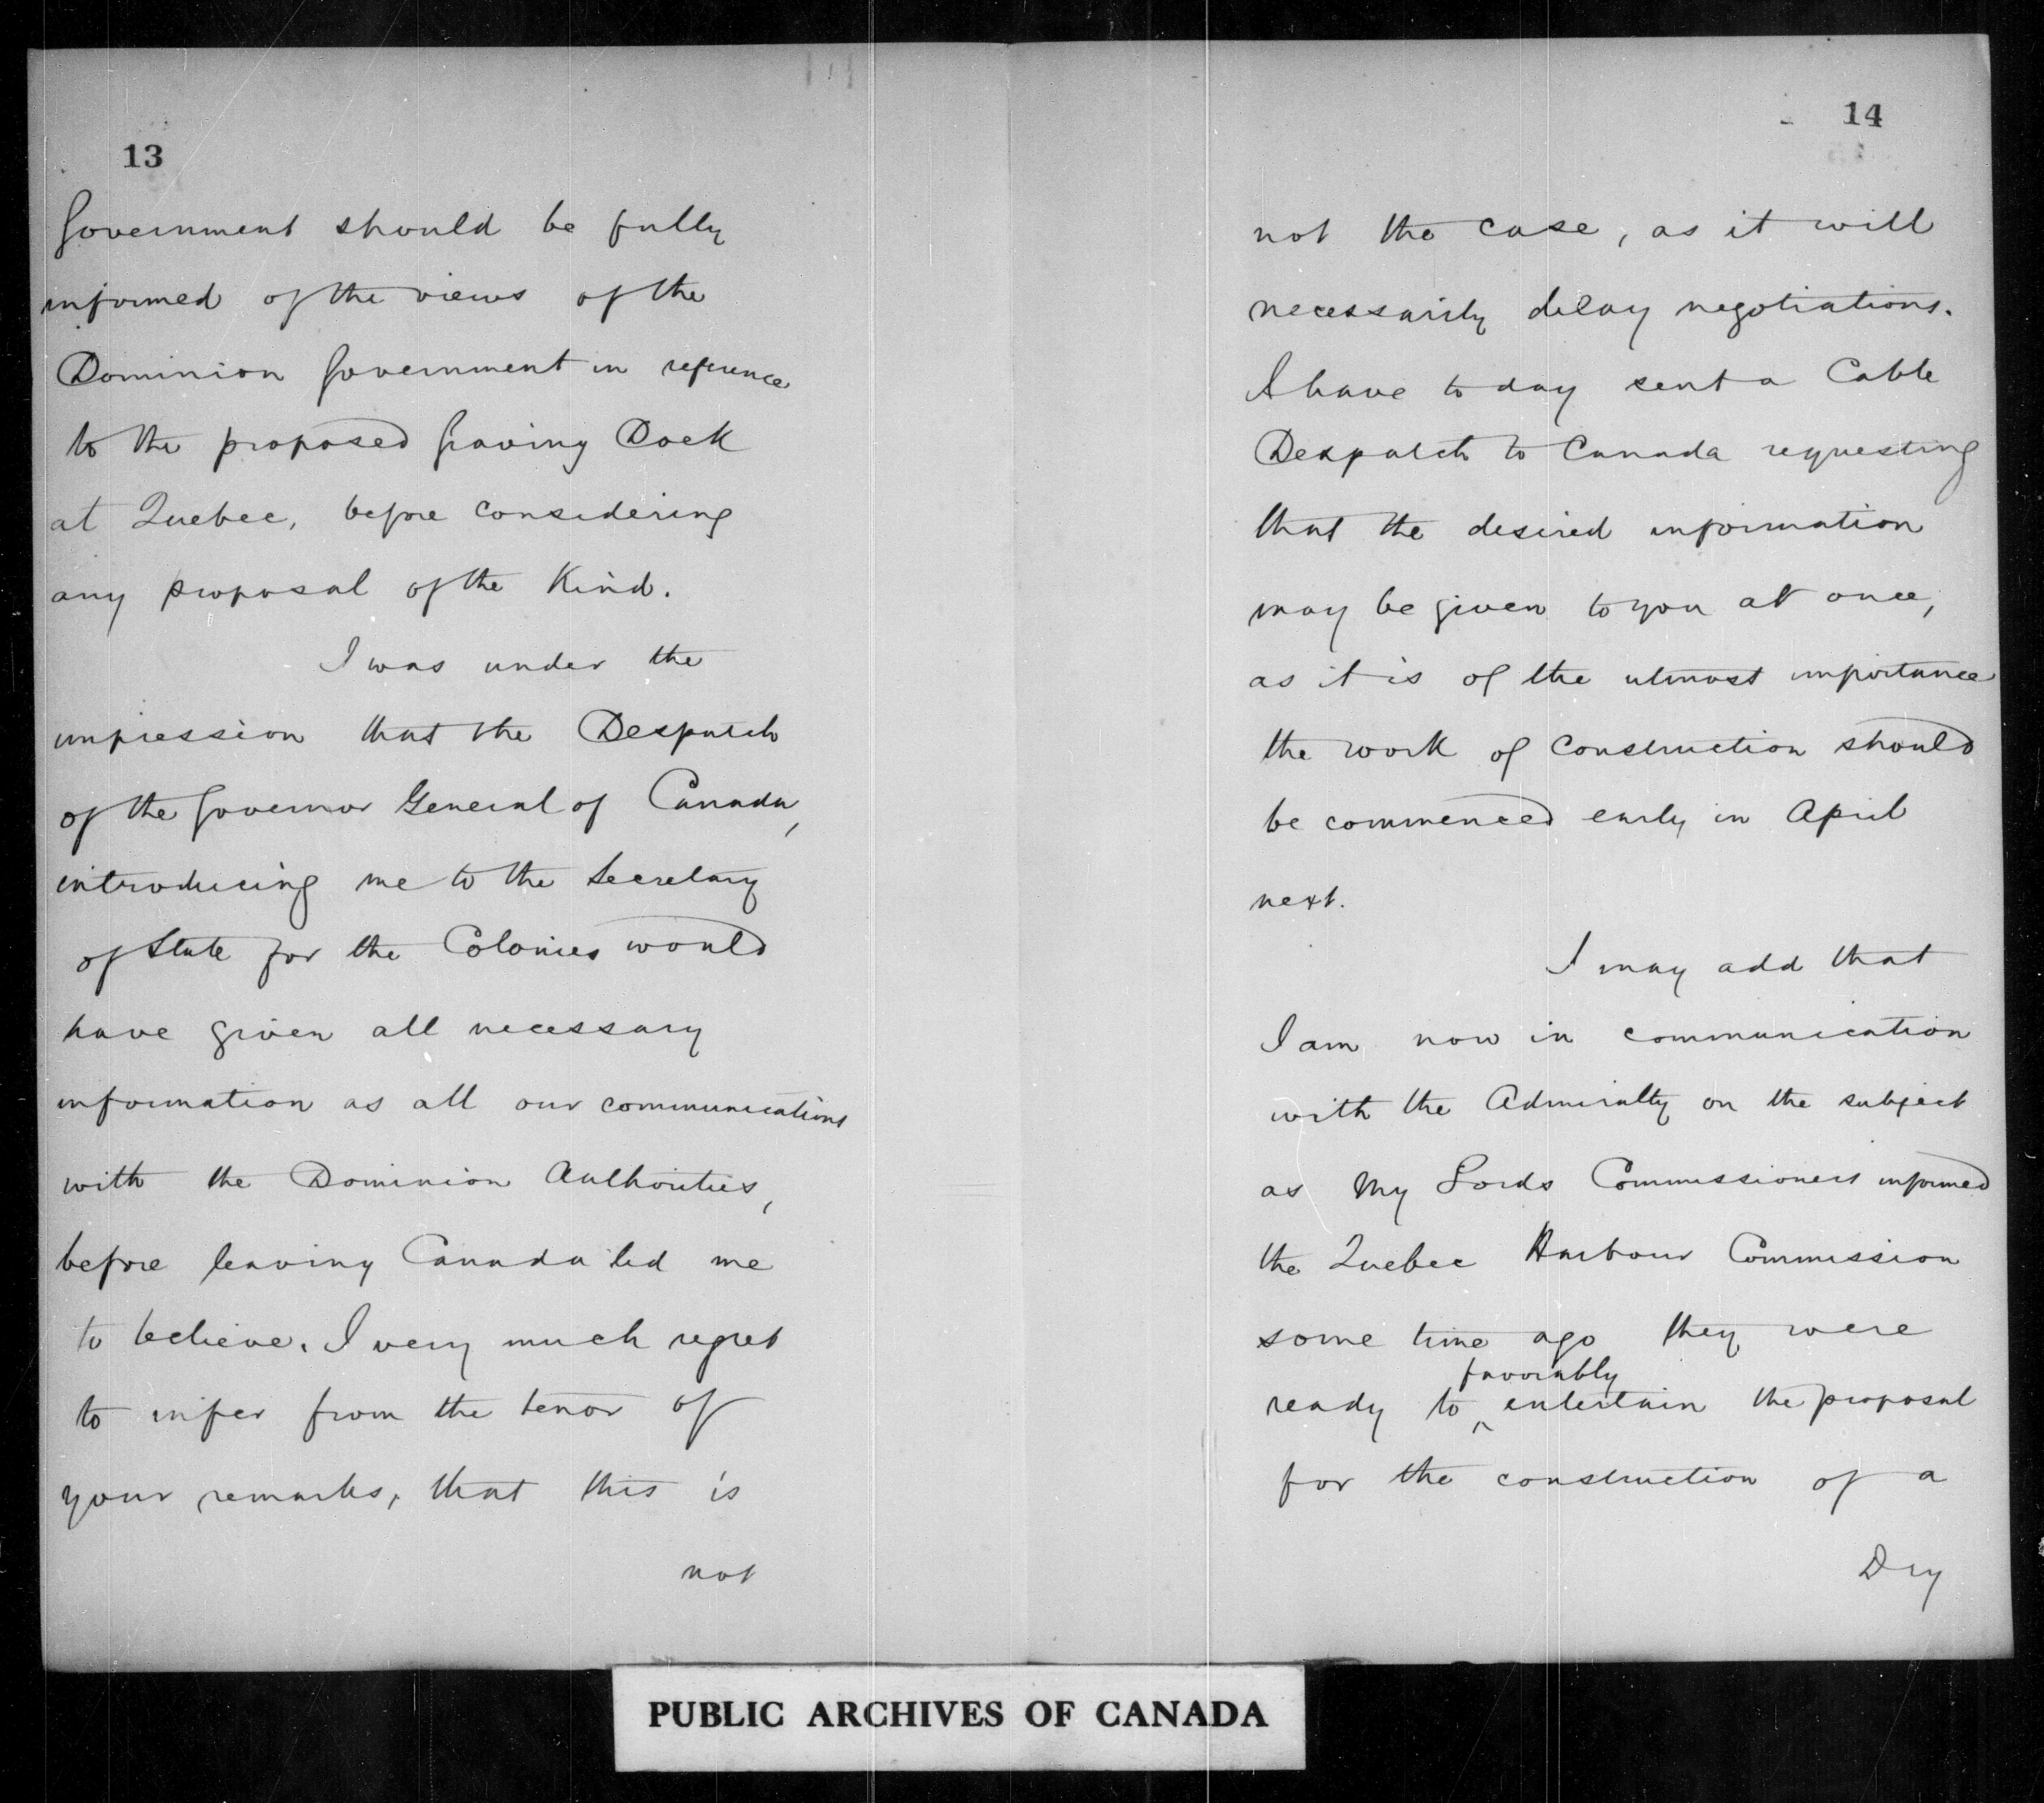 13
Government should be fully
informed of the views of the
Dominion Government in reference
to the proposed Graving Dock
at Quebec, before considering
any proposal of the Kind.
I was under the
impression that the Despatch
of the Governor General of Canada,
introducing me to the Secretary
of State for the Colonies would
have given all necessary
information as all our communications
with the Dominion Authorities,
before leaving Canada led me
to believe. I very much regret
to infer from the tenor of
your remarks, that this is
not
14
not the case, as it will
necessarily delay negotiations.
I have to day sent a Cable
Despatch to Canada requesting
that the desired information
may be given to you at once,
as it is of the utmost importance
the work of construction should
be commenced early in April
next.
I may add that
I am now in communication
with the Admiralty on the subject
as My Lords Commissioners informed
the Quebec Harbour Commission
some time ago they were
favorably
ready to ^ entertain the proposal
for the construction of a
Dry
PUBLIC ARCHIVES OF CANADA